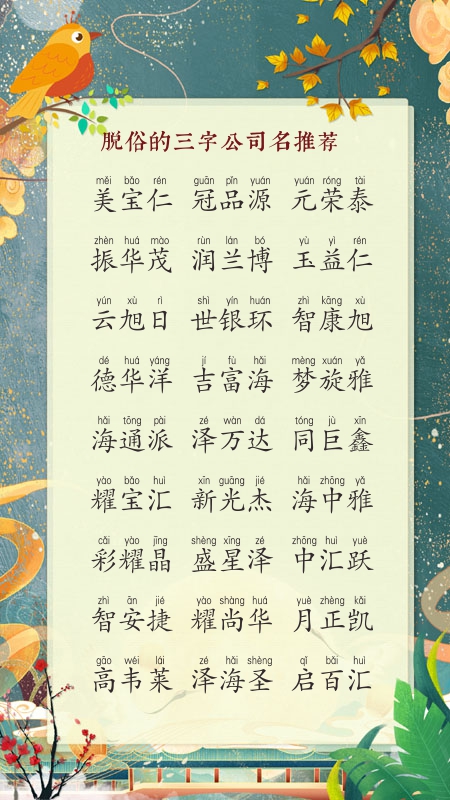 脱俗的三字公司名推荐
měi bǎo rén guān pǐn yuán yuán róng tài
美宝仁 冠品源 元荣泰
zhèn huá mào rùn lán bó yù yì rén
振华茂 润兰博 玉益仁
yún xù rì shì yín huán zhì kāng xù
云旭日 世银环 智康旭
dé huá yáng jí fù hǎi mèng xuán yǎ
德华洋 吉富海 梦旋雅
hǎi tōng pài zé wàn dá tóng jù xīn
海通派 泽万达 同巨鑫
yào bǎo huì xīn guāng jié hǎi zhōng yǎ
耀宝汇 新光杰 海中雅
cǎi yào jīng shèng xīng zé zhōng huì yuè
彩耀晶 盛星泽 中汇跃
zhì ān jié yào shàng huá yuè zhèng kǎi
智安捷 耀尚华 月正凯
gāo wéi lái zé hǎi shèng qǐ bǎi huì
高韦莱 泽海圣 启百汇